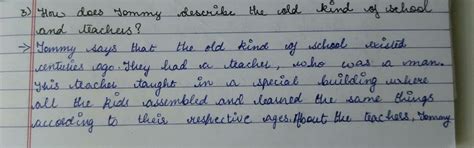 3) How does Tommy describe the old kind of school
and teachers?
→ Tommy says that the old kind of school existed
centuries ago. They had a teacher, who was a man.
This teacher taught in a special building where
all the kids assembled and learned the same things
according to their respective ages. About the teachers, Tommy